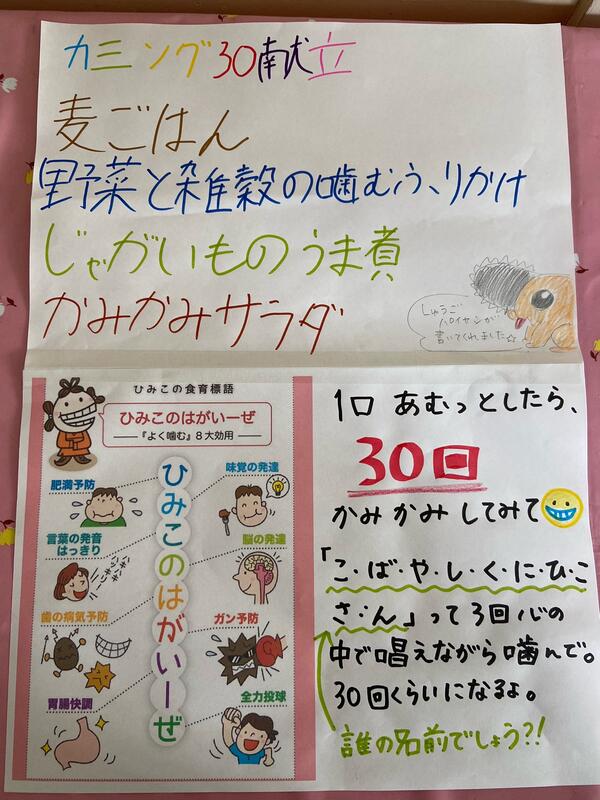 カミング30献立
麦ごはん
野菜と雑穀の噛むふりかけ
じゃがいものうま煮
かみかみサラダ
しゅうご
パイヤンが
書いてくれました☆
ひみこの食育標語
ひみこのはがいーぜ
『よく噛む』8大効用
ひみこのはがいーぜ
肥満予防
味覚の発達
言葉の発音
はっきり
ハキハキ
ハッキリ
脳の発達
歯の病気予防
ガン予防
胃腸快調
全力投球
1口 あむっとしたら、
30回
かみかみしてみて
「こ・ば・や・し・く・に・ひ・こ
さ・ん」って3回心の
中で唱えながら噛んで。
30回くらいになるよ。
誰の名前でしょう?!